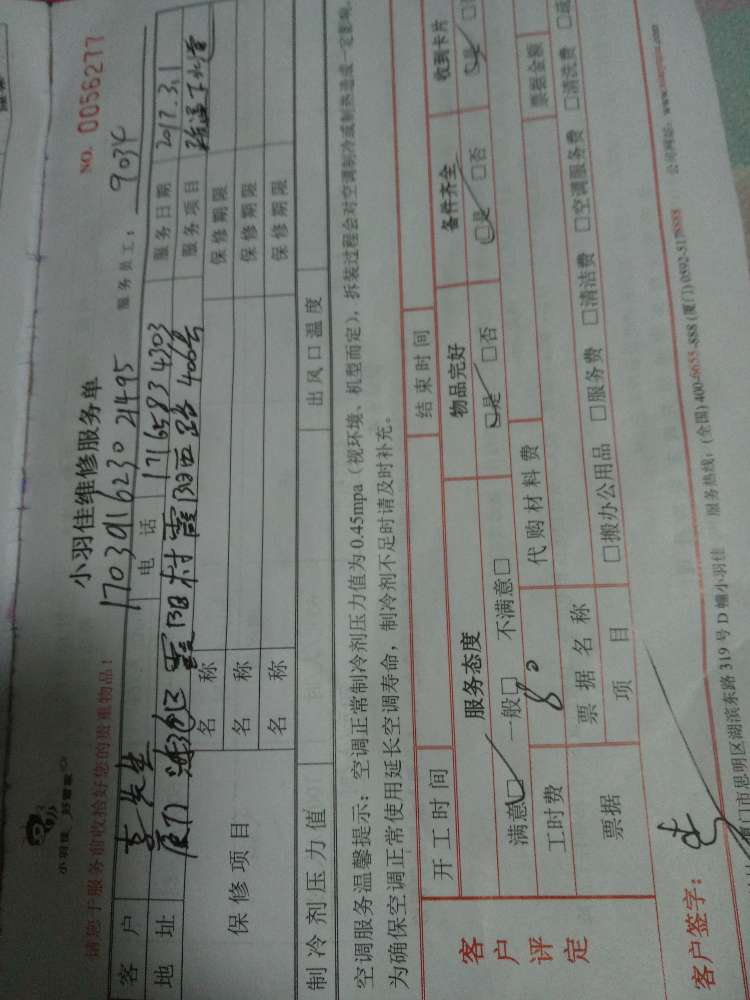 小羽佳 好管家
小羽佳维修服务单
NO. 0056277
请您于服务前收拾好您的贵重物品!
17039162302 1495
服务员工: 9034
客户 李先生 电话 17165834303 服务日期 2017.3.1
地址 厦门 海沧区 霞阳村霞阳西路400号 服务项目 疏通下水道
保修项目 名称 保修期限
名称 保修期限
名称 保修期限
制冷剂压力值 出风口温度
空调服务温馨提示: 空调正常制冷剂压力值为0.45mpa(视环境、机型而定), 拆装过程会对空调制冷或制热造成一定影响,
为确保空调正常使用延长空调寿命, 制冷剂不足时请及时补充。
开工时间 结束时间
客户评定 服务态度 物品完好 备件齐全 收到卡片
满意□ 一般□ 不满意□ □是 □否 □是 □否 □是
工时费 80 代购材料费 票据金额
票据 票据名称
项目 □搬办公用品 □服务费 □清洁费 □空调服务费 □清洗费
客户签字:
门市思明区湖滨东路319号D幢小羽佳 服务热线: (全国)400-6655-888 (厦门)0592-5178888 公司网站: www.